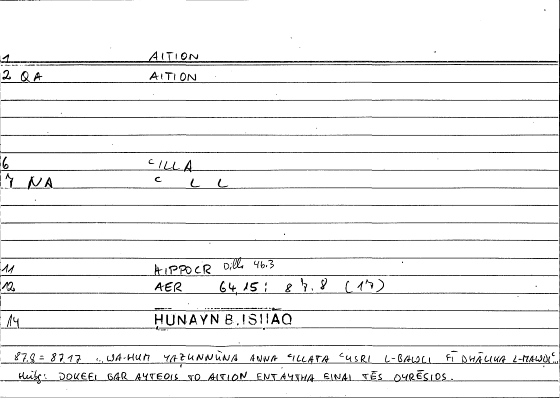 1 AITION
2 QA AITION
6 ʿILLA
7 NA ʿ L L
11 HIPPOCR Diller 46.3
12 AER 64,15; 87.8 (17)
14 HUNAYN B. ISHAQ
87.8 = 87.17 : WA-HUM YAẒUNNŪNA ANNA ʿILLATA ʿUSRI L-BAWLI FĪ DHĀLIKA L-MAWḌIʿ
DOKEEI GAR AYTEOIS TO AITION ENTAYTHA EINAI TĒS OYRĒSIOS.